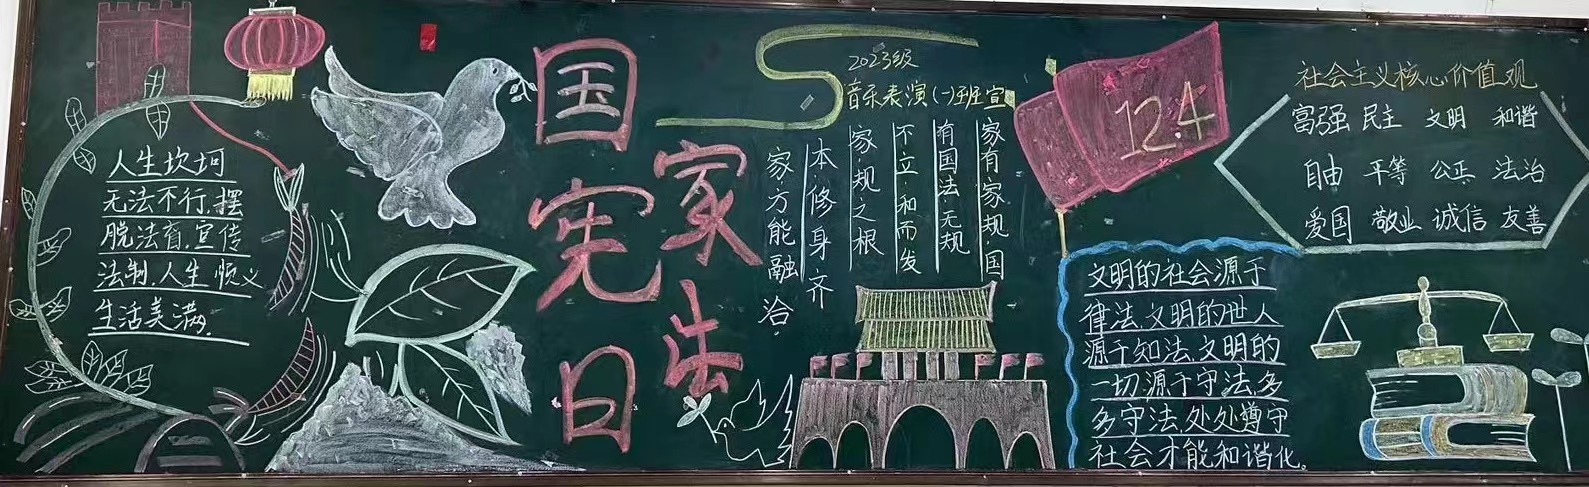 人生坎坷
无法不行,摆
脱法盲,宣传
法制,人生顺义
生活美满。
国家宪法日
2023级
音乐表演(一)班宣
家有家规,国
有国法,无规
不立,和而发
家规之根
本,修身齐
家方能融
洽。
12.4
社会主义核心价值观
富强 民主 文明 和谐
自由 平等 公正 法治
爱国 敬业 诚信 友善
文明的社会源于
律法,文明的世人
源于知法,文明的
一切源于守法,多
多守法,处处遵守
社会才能和谐化。